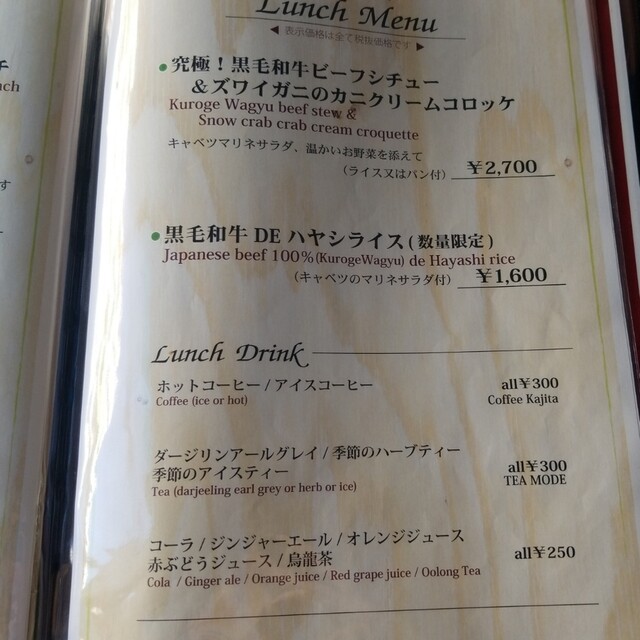 Lunch Menu
◀ 表示価格は全て税抜価格です ▶
チ
uch
す
●究極！黒毛和牛ビーフシチュー
＆ズワイガニのカニクリームコロッケ
Kuroge Wagyu beef stew &
Snow crab crab cream croquette
キャベツマリネサラダ、温かいお野菜を添えて
（ライス又はパン付） ￥2,700
●黒毛和牛 DE ハヤシライス ( 数量限定 )
Japanese beef 100%(KurogeWagyu) de Hayashi rice
（キャベツのマリネサラダ付） ￥1,600
Lunch Drink
ホットコーヒー / アイスコーヒー all￥300
Coffee (ice or hot) Coffee Kajita
ダージリンアールグレイ / 季節のハーブティー
季節のアイスティー all￥300
Tea (darjeeling earl grey or herb or ice) TEA MODE
コーラ / ジンジャーエール / オレンジジュース
赤ぶどうジュース / 烏龍茶 all￥250
Cola / Ginger ale / Orange juice / Red grape juice / Oolong Tea